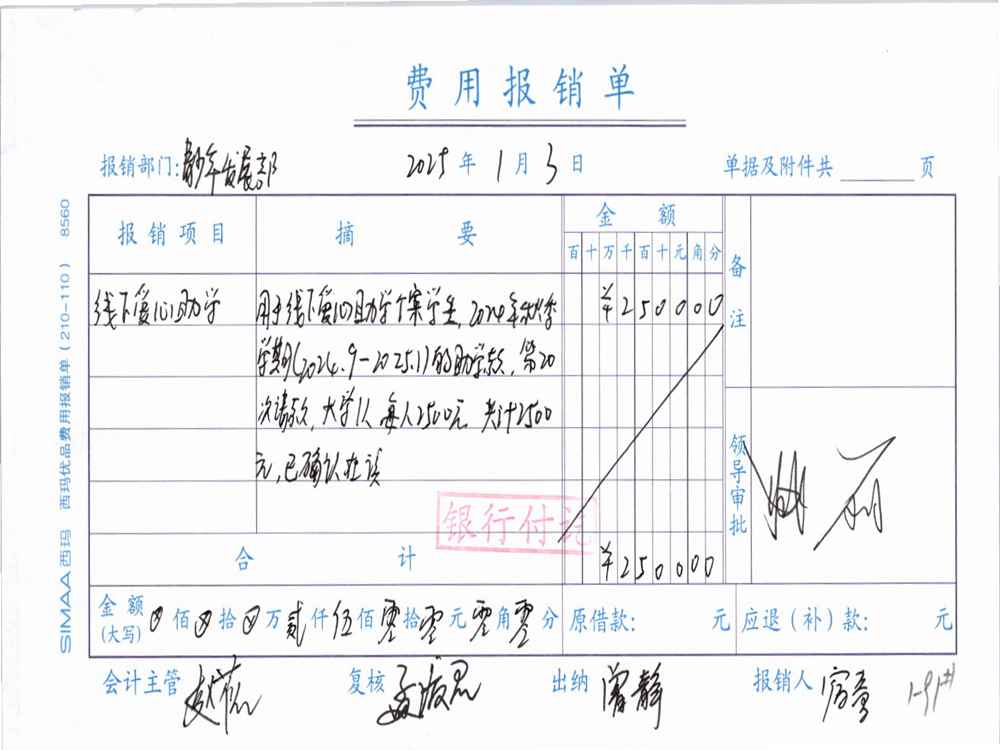 费用报销单
报销部门: 青少年发展部 2025 年 1 月 3 日 单据及附件共 页
报销项目 摘要 金额 备注
百 十 万 千 百 十 元 角 分
线下爱心助学 用于线下爱心助学个案学生, 2024年秋季 ¥250000
学期(2024.9-2025.1)的助学款, 第20
次请款, 大学1人 每人2500元 共计2500
元, 已确认在读
领导审批
银行付讫
合计 ¥250000
金额(大写) 佰 拾 万 贰 仟 伍 佰 零 拾 零 元 零 角 零 分 原借款: 元 应退(补)款: 元
会计主管 复核 出纳 曾静 报销人 1-91#
SIMAA西玛 西玛优品费用报销单(210-110) 8560